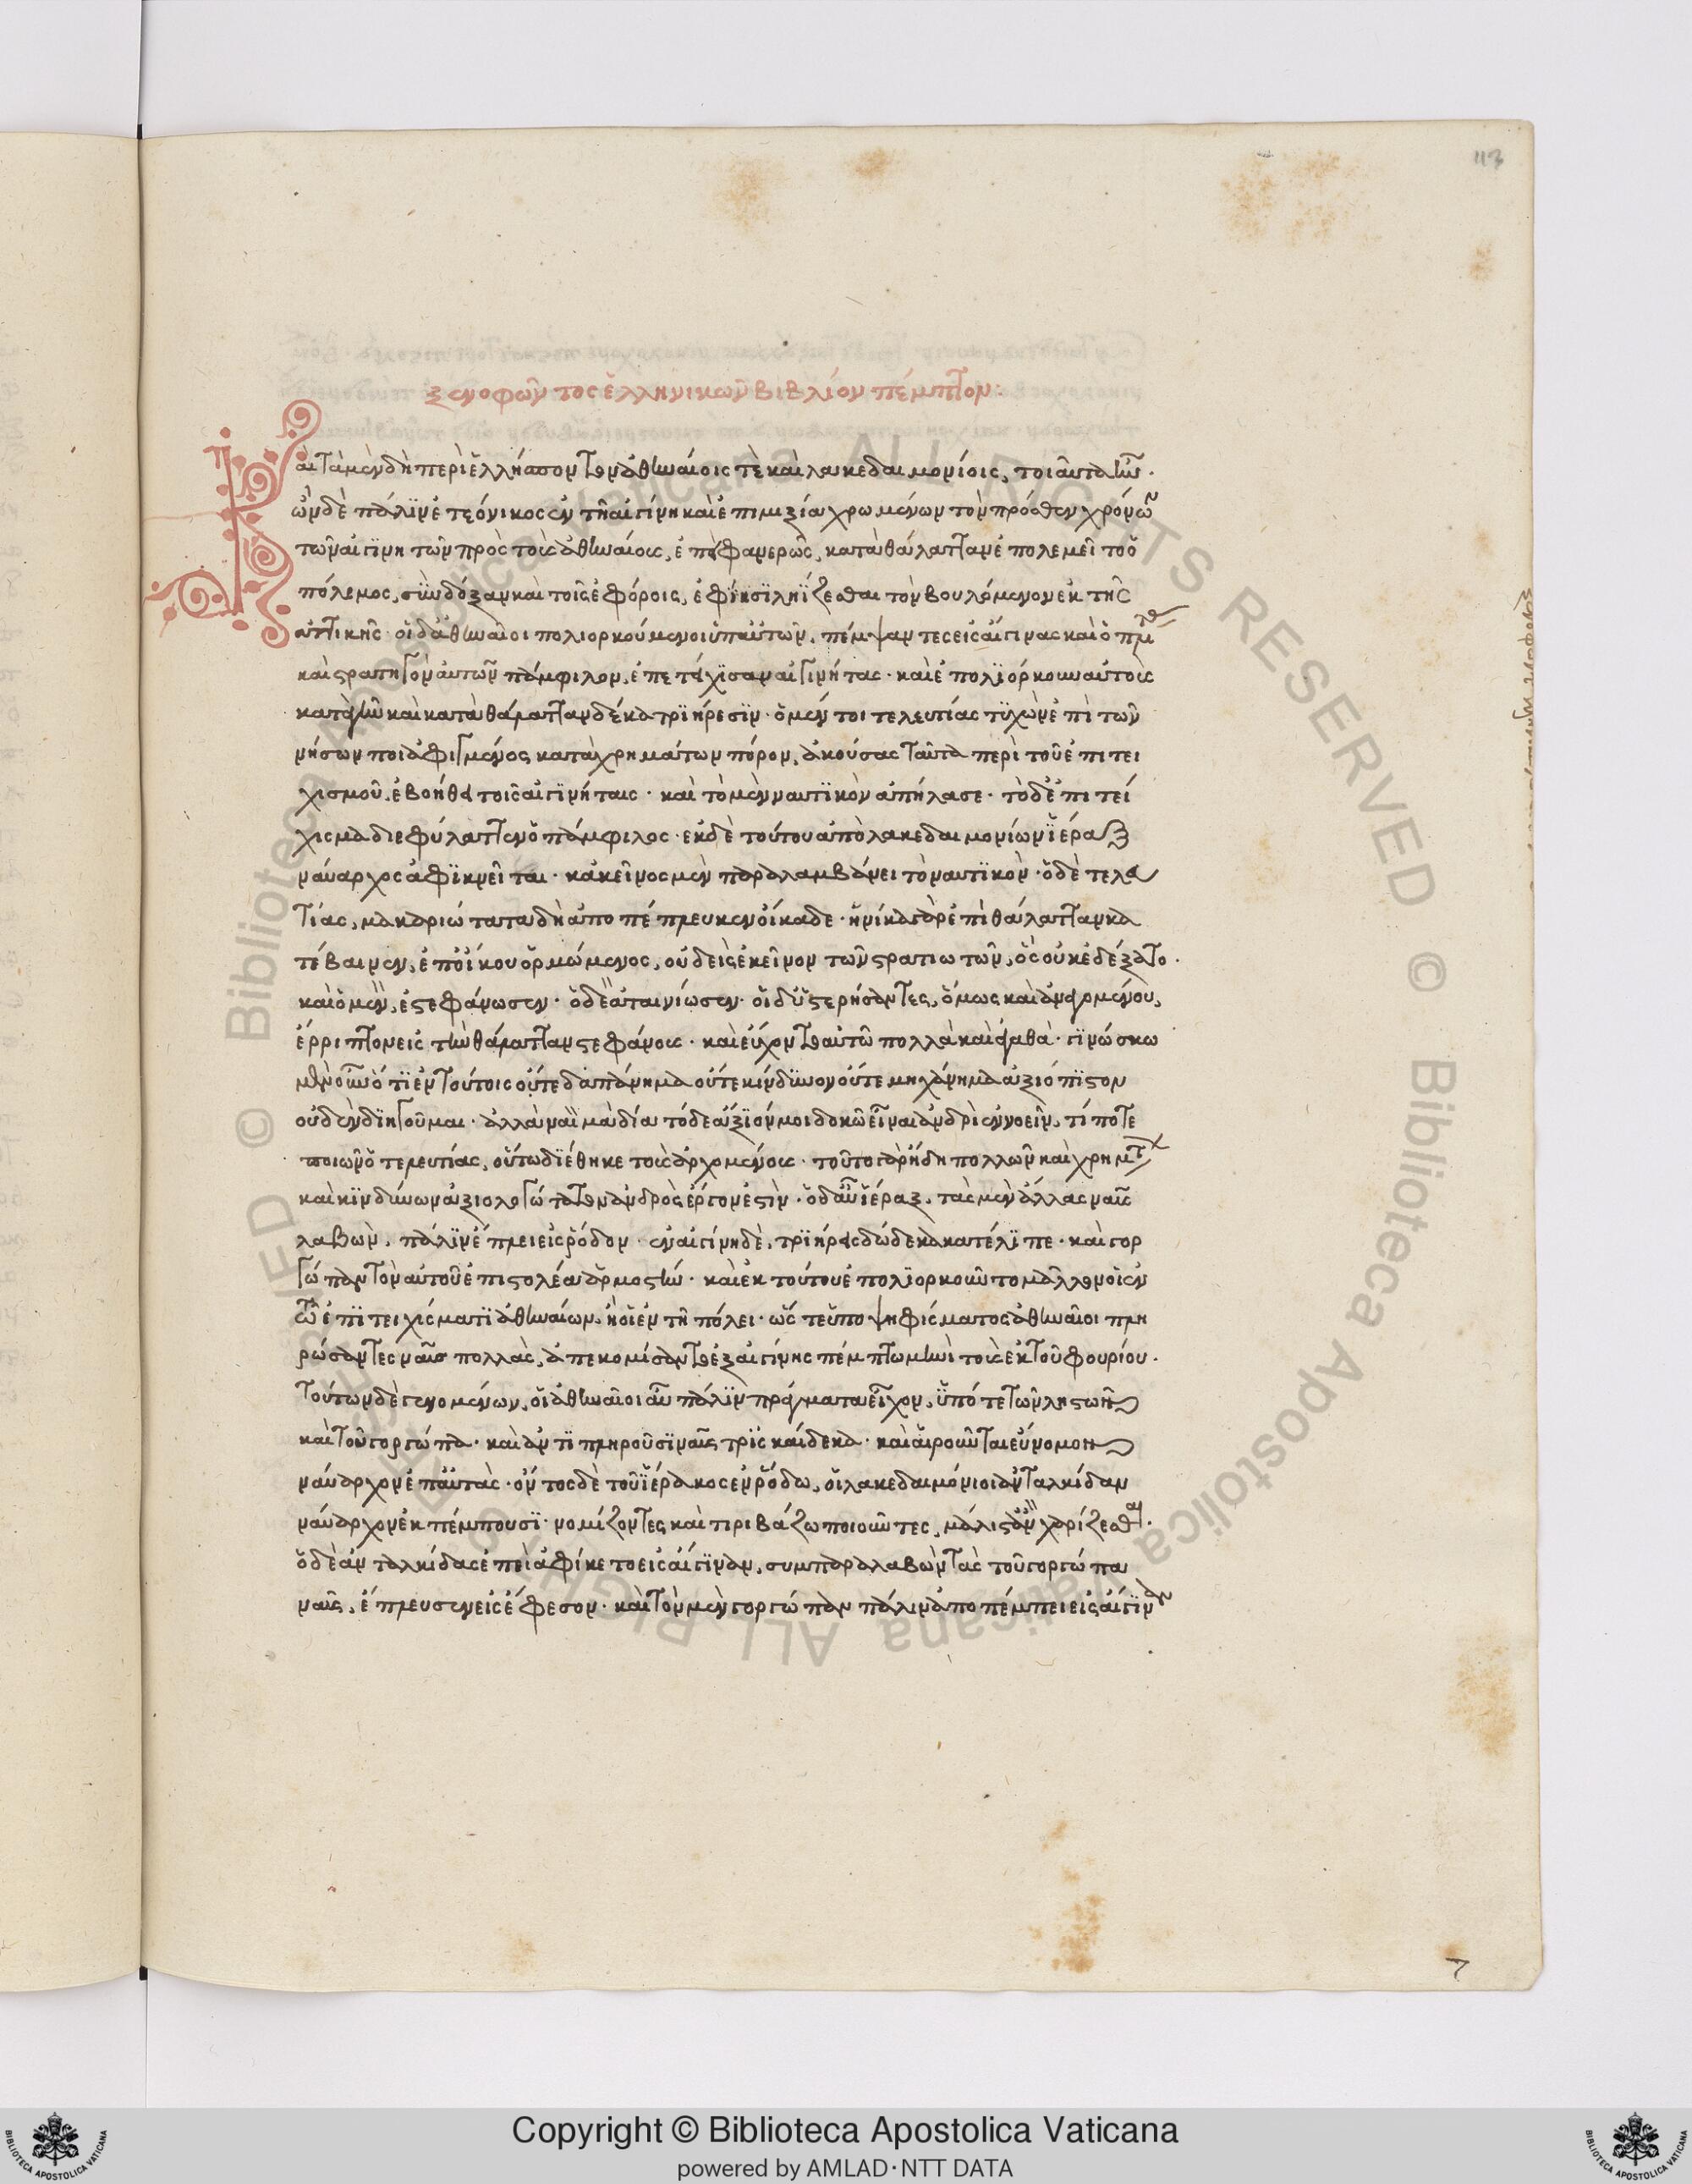 113
ξενοφῶντος ἑλληνικῶν βιβλίον πέμπτον:
Καὶ τὰ μὲν δὴ περὶ ἑλλήσποντον ἀθηναίοις τὲ καὶ λακεδαιμονίοις, τοιαῦτα ἦν.
ὢν δὲ πάλιν ἐτεόνικος ἐν τῆ αἰγίνη καὶ ἐπιμιξία χρωμένων τὸν πρόσθεν χρόνον
τῶν αἰγινητῶν πρὸς τοὺς ἀθηναίους, ἐπεὶ φανερῶς, κατὰ θάλατταν ἐπολεμεῖτο ὁ
πόλεμος, συνδόξαν καὶ τοῖς ἐφόροις, ἐφίησι ληΐζεσθαι τὸν βουλόμενον ἐκ τῆς
ἀττικῆς· οἱ δ' ἀθηναῖοι πολιορκούμενοι ὑπ' αὐτῶν, πέμψαντες εἰς αἴγιναν καὶ ὁπλίτας
καὶ στρατηγὸν αὐτῶν πάμφιλον, ἐπετείχισαν αἰγινήταις· καὶ ἐπολιόρκουν αὐτοὺς
κατὰ γῆν καὶ κατὰ θάλατταν δέκα τριήρεσιν· ὁ μέν τοι τελευτίας τυχὼν ἐπὶ τῶν
νήσων ποι ἀφιγμένος κατὰ χρημάτων πόρον, ἀκούσας ταῦτα περὶ τοῦ ἐπιτει
χισμοῦ, ἐβοήθει τοῖς αἰγινήταις· καὶ τὸ μὲν ναυτικὸν ἀπήλασε· τὸ δ' ἐπιτεί
χισμα διεφύλαττεν ὁ πάμφιλος· ἐκ δὲ τούτου ἀπὸ λακεδαιμονίων ἱέραξ
ναύαρχος ἀφικνεῖται· κἀκεῖνος μὲν παραλαμβάνει τὸ ναυτικὸν· ὁ δὲ τελευ
τίας, μακαριώτατα δὴ ἀποπέπλευκεν οἴκαδε· ἡνίκα γὰρ ἐπὶ θάλατταν κα
τέβαινεν, ἐπ' οἴκου ὁρμώμενος, οὐδεὶς ἐκεῖνον τῶν στρατιωτῶν, ὃς οὐκ ἐδέξατο.
καὶ ὁ μὲν, ἐστεφάνωσεν· ὁ δὲ ἐταινίωσεν· οἱ δ' ὑστερήσαντες, ὅμως καὶ ἀναγομένου,
ἔρριπτον εἰς τὴν θάλατταν στεφάνους· καὶ εὔχοντο αὐτῶ πολλὰ καὶ ἀγαθὰ· γινώσκω
μὲν οὖν ὅτι ἐν τούτοις οὔτε δαπάνημα οὔτε κίνδυνον οὔτε μηχάνημα ἀξιόπιστον
οὐδὲν διηγοῦμαι· ἀλλὰ ναὶ μὰ δία τόδε ἄξιόν μοι δοκεῖ εἶναι ἀνδρὶ ἐννοεῖν, τί ποτε
ποιῶν ὁ τελευτίας, οὕτω διέθηκε τοὺς ἀρχομένους· τοῦτο γὰρ ἤδη πολλῶν καὶ χρημάτων
καὶ κινδύνων ἀξιολογώτατον ἀνδρὸς ἔργον ἐστὶν· ὁ δ' αὖ ἱέραξ, τὰς μὲν ἄλλας ναῦς
λαβὼν, πάλιν ἔπλει εἰς ῥόδον· ἐν αἰγίνη δὲ, τριήρεις δώδεκα κατέλιπε· καὶ γορ
γώπαν τὸν αὐτοῦ ἐπιστολέα ἁρμοστήν· καὶ ἐκ τούτου ἐπολιορκοῦντο μᾶλλον οἱ ἐν
τῶ ἐπιτειχίσματι ἀθηναίων, ἢ οἱ ἐν τῆ πόλει· ὥς τε ὑπὸ ψηφίσματος ἀθηναῖοι πλη
ρώσαντες ναῦς πολλὰς, ἀπεκομίσαντο ἐξ αἰγίνης πέμπτω μηνὶ τοὺς ἐκ τοῦ φρουρίου.
τούτων δὲ γενομένων, οἱ ἀθηναῖοι αὖ πάλιν πράγματα εἶχον, ὑπό τε τῶν ληστῶν
καὶ τοῦ γοργώπα· καὶ ἀντιπληροῦσι ναῦς τρὶς καίδεκα· καὶ αἱροῦνται εὔνομον
ναύαρχον ἐπ' αὐτὰς· ὄντος δὲ τοῦ ἱέρακος ἐν ῥόδω, οἱ λακεδαιμόνιοι ἀνταλκίδαν
ναύαρχον ἐκπέμπουσι· νομίζοντες καὶ τιριβάζω ποιοῦντες, μάλιστ' ἂν χαρίζεσθαι.
ὁ δὲ ἀνταλκίδας ἐπεὶ ἀφίκετο εἰς αἴγιναν, συμπαραλαβὼν τὰς τοῦ γοργώπα
ναῦς, ἔπλευσεν εἰς ἔφεσον· καὶ τὸν μὲν γοργώπαν πάλιν ἀποπέμπει εἰς αἴγιναν
Copyright © Biblioteca Apostolica Vaticana
powered by AMLAD·NTT DATA